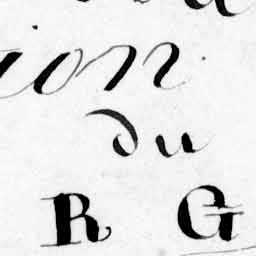 ion
du
R G